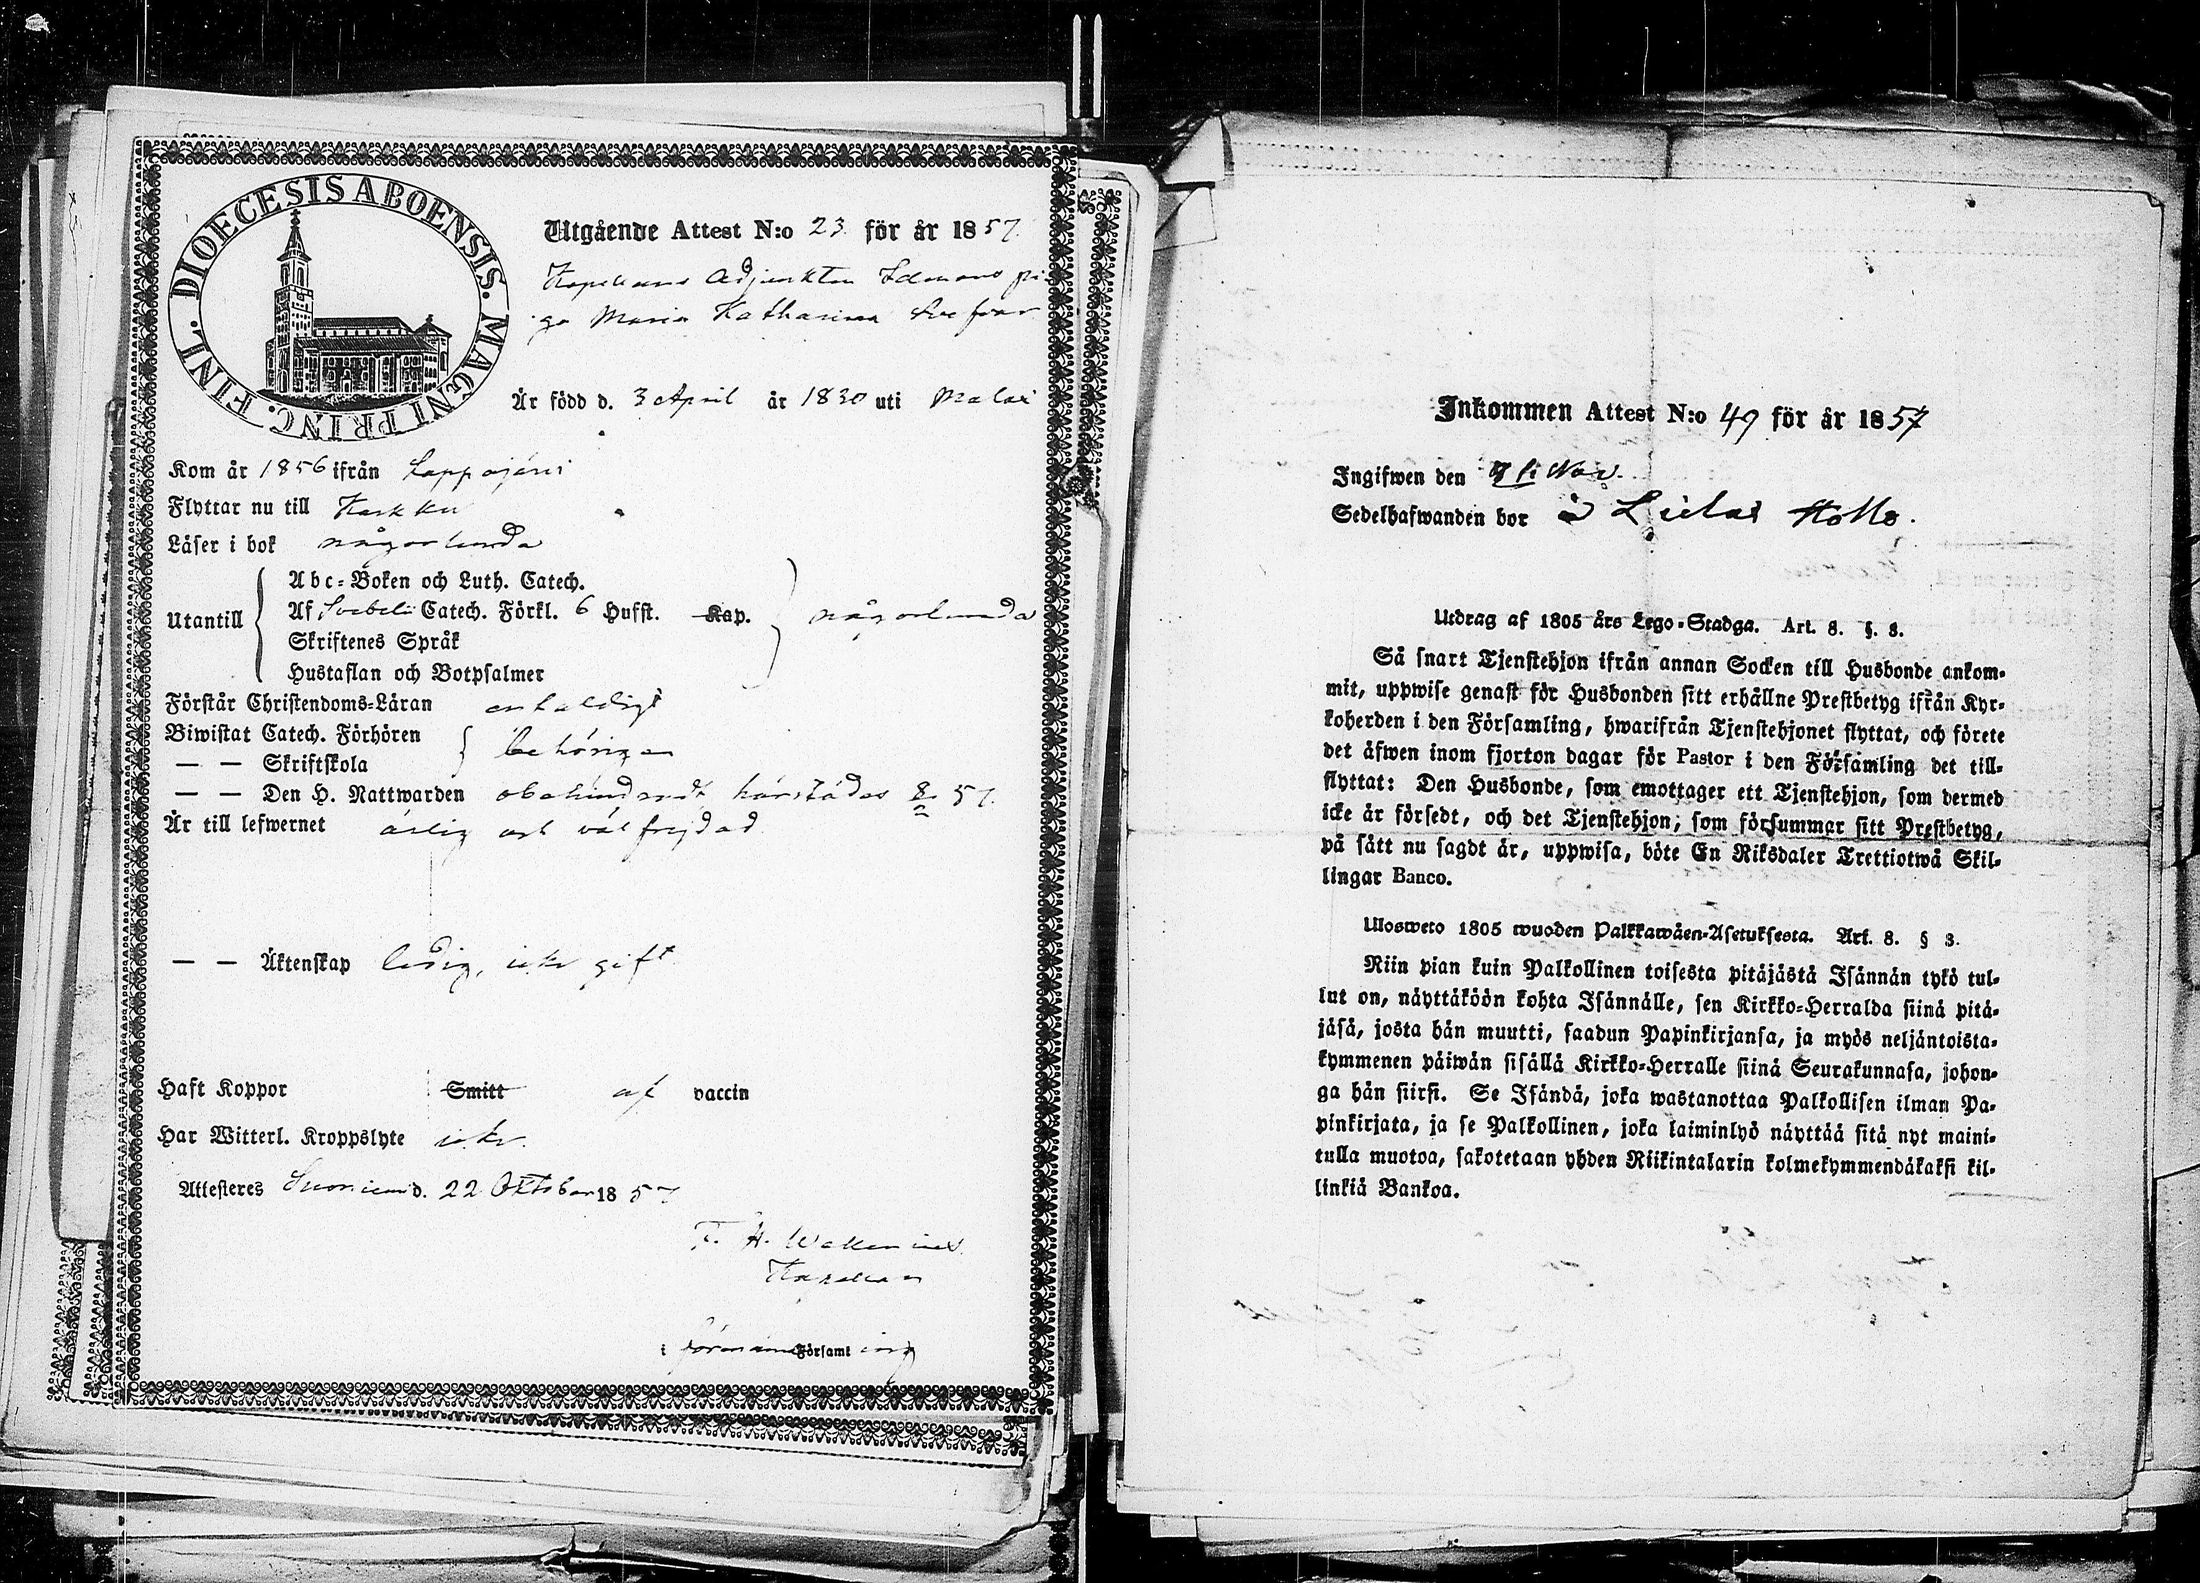 DIOECESIS ABOENSIS. MAGNI PRINC. FINL.
Utgående Attest N:o 23 för år 1857.
Adjunkten pi-
ga Maria Katharina
Är född d. 3 April år 1830 uti Malax
Kom år 1856 ifrån Lappajärvi
Flyttar nu till Karkku
Läser i bok någorlunda
Utantill
Abc-Boken och Luth. Catech.
Af Svebeli Catech. Förkl. 6 Hufst. Kap.
Skriftenes Språk
Hustaflan och Botpsalmer
någorlunda
Förstår Christendoms-Läran enfaldigt
Biwistat Catech. Förhören
— — Skriftskola
behörigen
— — Den H. Nattwarden obehindradt härstädes 57.
Är till lefwernet ärlig och välfrejdad
— — Äktenskap ledig, icke gift
Haft Koppor Smitt af vaccin
Har Witterl. Kroppslyte icke.
Attesteres Suoniemi d. 22 Oktober 1857
F. H. Wallenius
Kapellan
i församl
Inkommen Attest N:o 49 för år 1857
Ingifwen den Nov.
Sedelhafwanden bor
Utdrag af 1805 års Lego-Stadga. Art. 8. §. 8.
Så snart Tjenstehjon ifrån annan Socken till Husbonde ankom-
mit, uppwise genast för Husbonden sitt erhållne Prestbetyg ifrån Kyr-
koherden i den Församling, hwarifrån Tjenstehjonet flyttat, och förete
det äfwen inom fjorton dagar för Pastor i den Församling det till-
flyttat: Den Husbonde, som emottager ett Tjenstehjon, som dermed
icke är försedt, och det Tjenstehjon, som försummar sitt Prestbetyg,
på sätt nu sagdt är, uppwisa, böte En Riksdaler Trettiotwå Skil-
lingar Banco.
Ulosweto 1805 wuoden Palkkawäen-Asetuksesta. Art. 8. § 3.
Niin pian kuin Palkollinen toisesta pitäjästä Isännän tykö tul-
lut on, näyttäköön kohta Isännälle, sen Kirkko-Herralda siinä pitä-
jäsä, josta hän muutti, saadun Papinkirjansa, ja myös neljäntoista-
kymmenen päiwän sisällä Kirkko-Herralle siinä Seurakunnasa, johon-
ga hän siirsi. Se Isändä, joka wastanottaa Palkollisen ilman Pa-
pinkirjata, ja se Palkollinen, joka laiminlyö näyttää sitä nyt maini-
tulla muotoa, sakotetaan yhden Riikintalarin kolmekymmendäkaksi kil-
linkiä Bankoa.